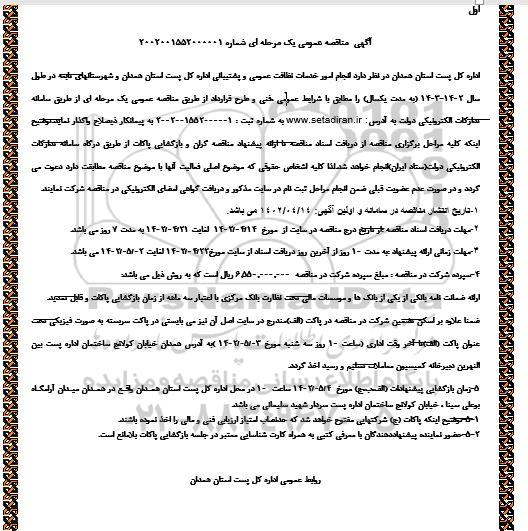 اول
آگهی مناقصه عمومی یک مرحله ای شماره ۲۰۰۲۰۰۱۵۵۲۰۰۰۰۰۱
اداره کل پست استان همدان در نظر دارد انجام امور خدمات نظافت عمومی و پشتیبانی اداره کل پست استان همدان و شهرستانهای تابعه در طول
سال ۱۴۰۲-۱۴۰۳ (به مدت یکسال) را مطابق با شرایط عمومی ،فنی و طرح قرارداد از طریق مناقصه عمومی یک مرحله ای از طریق سامانه
تدارکات الکترونیکی دولت به آدرس: www.setadiran.ir به شماره ثبت : ۲۰۰۲۰۰۱۵۵۲۰۰۰۰۰۱ به پیمانکار ذیصلاح واگذار نماید.توضیح
اینکه کلیه مراحل برگزاری مناقصه از دریافت اسناد مناقصه تا ارائه پیشنهاد مناقصه گران و بازگشایی پاکات از طریق درگاه سامانه تدارکات
الکترونیکی دولت(ستاد ایران)انجام خواهد شد.لذا کلیه اشخاص حقوقی که موضوع اصلی فعالیت آنها با موضوع مناقصه مطابقت دارد دعوت می
گردد و در صورت عدم عضویت قبلی ضمن انجام مراحل ثبت نام در سایت مذکور و دریافت گواهی امضای الکترونیکی در مناقصه شرکت نمایند.
۱-تاریخ انتشار مناقصه در سامانه و اولین آگهی: ۱۴۰۲/۰۴/۱۴ می باشد.
۲-مهلت دریافت اسناد مناقصه از تاریخ درج مناقصه در سایت از مورخ ۱۴۰۲/۰۴/۱۴ لغایت ۱۴۰۲/۰۴/۲۱ به مدت ۷ روز می باشد.
۳-مهلت زمانی ارائه پیشنهاد :به مدت ۱۰ روز از آخرین روز دریافت اسناد از سایت مورخ۱۴۰۲/۰۴/۲۲ لغایت ۱۴۰۲/۰۵/۰۲ می باشد.
۴-سپرده شرکت در مناقصه : مبلغ سپرده شرکت در مناقصه ریال است که به روش ذیل می باشد:
ارائه ضمانت نامه بانکی از یکی از بانک ها و موسسات مالی تحت نظارت بانک مرکزی با اعتبار سه ماهه از زمان بازگشایی پاکات و قابل تمدید.
ضمنا علاوه بر اسکن تضمین شرکت در مناقصه در پاکت (الف)مندرج در سایت اصل آن نیز می بایستی در پاکت سربسته به صورت فیزیکی تحت
عنوان پاکت (الف)تا آخر وقت اداری (ساعت ۱۰ روز سه شنبه مورخ ۱۴۰۲/۰۵/۰۳ )به آدرس همدان خیابان کولانج ساختمان اداره پست بین
النهرین دبیرخانه کمیسیون معاملات تسلیم و رسید اخذ گردد.
۵-زمان بازگشایی پیشنهادات (الف-ب-ج) مورخ ۱۴۰۲/۰۵/۰۴ ساعت ۱۰ در محل اداره کل پست استان همدان واقع در همدان میدان آرامگاه
بوعلی سینا ، خیابان کولانج ساختمان اداره پست سردار شهید سلیمانی می باشد.
۵-۱-توضیح اینکه پاکات (ج) شرکتهایی مفتوح خواهد شد که حدنصاب امتیاز ارزیابی فنی و مالی را اخذ نموده باشند.
۵-۲-حضور نماینده پیشنهاددهندگان با معرفی کتبی به همراه کارت شناسایی معتبر در جلسه بازگشایی پاکات بلامانع است.
روابط عمومی اداره کل پست استان همدان